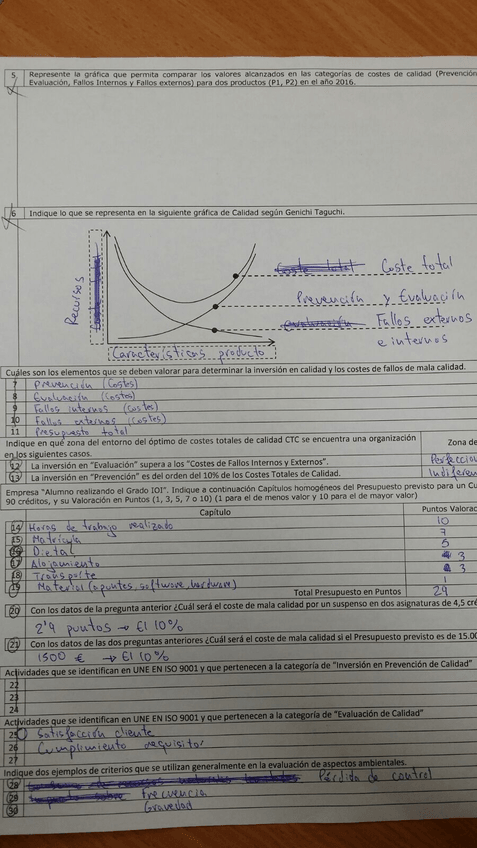 5 Represente la gráfica que permita comparar los valores alcanzados en las categorías de costes de calidad (Prevención
Evaluación, Fallos Internos y Fallos externos) para dos productos (P1, P2) en el año 2016.
6 Indique lo que se representa en la siguiente gráfica de Calidad según Genichi Taguchi.
Recursos
Coste total
Prevención y Evaluación
Fallos externos
e internos
Características producto
Cuáles son los elementos que se deben valorar para determinar la inversión en calidad y los costes de fallos de mala calidad.
7 Prevención (Costes)
8 Evaluación (Costes)
9 Fallos internos (Costes)
10 Fallos externos (Costes)
11 Presupuesto total
Indique en qué zona del entorno del óptimo de costes totales de calidad CTC se encuentra una organización
en los siguientes casos.
Zona de
12 La inversión en "Evaluación" supera a los "Costes de Fallos Internos y Externos".
Perfeccio
13 La inversión en "Prevención" es del orden del 10% de los Costes Totales de Calidad.
Indiferen
Empresa "Alumno realizando el Grado IOI". Indique a continuación Capítulos homogéneos del Presupuesto previsto para un Cu
90 créditos, y su Valoración en Puntos (1, 3, 5, 7 o 10) (1 para el de menos valor y 10 para el de mayor valor)
Capítulo Puntos Valorac
14 Horas de trabajo realizado 10
15 Matrícula 7
16 Dieta 5
17 Alojamiento 3
18 Transporte 3
19 Material (apuntes, software, hardware) 1
Total Presupuesto en Puntos 29
20 Con los datos de la pregunta anterior ¿Cuál será el coste de mala calidad por un suspenso en dos asignaturas de 4,5 cré
2'9 puntos → El 10%
21 Con los datos de las dos preguntas anteriores ¿Cuál será el coste de mala calidad si el Presupuesto previsto es de 15.00
1500 € → El 10%
Actividades que se identifican en UNE EN ISO 9001 y que pertenecen a la categoría de "Inversión en Prevención de Calidad"
22
23
24
Actividades que se identifican en UNE EN ISO 9001 y que pertenecen a la categoría de "Evaluación de Calidad"
25 Satisfacción cliente
26 Cumplimiento requisitos
27
Indique dos ejemplos de criterios que se utilizan generalmente en la evaluación de aspectos ambientales.
28 Pérdida de control
29 Frecuencia
30 Gravedad